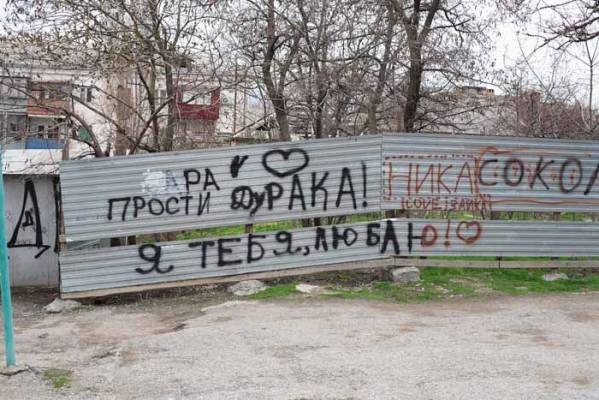 РА
ПРОСТИ ДУРАКА!
Я ТЕБЯ, ЛЮБЛЮ!
НИКА СОКОЛ
LOVE
Д